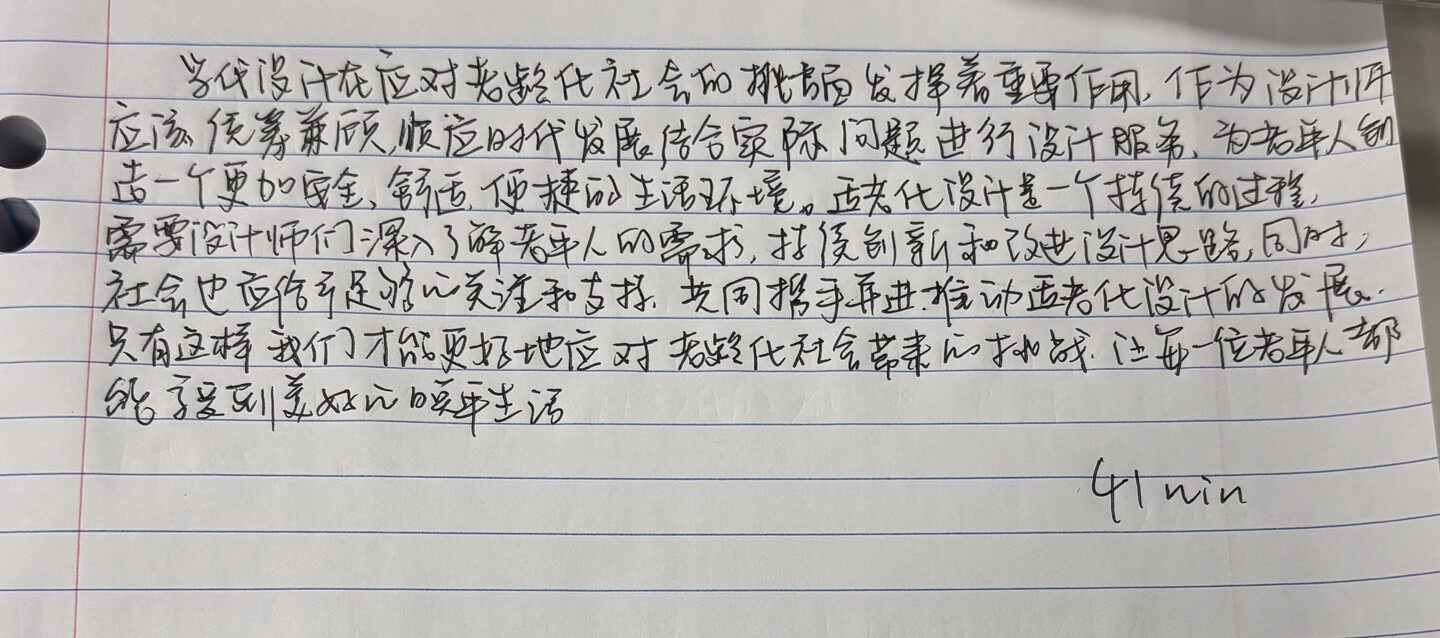 当代设计在应对老龄化社会的挑战面发挥着重要作用,作为设计师
应该统筹兼顾,顺应时代发展,结合实际问题进行设计服务,为老年人创
造一个更加安全、舒适、便捷的生活环境。适老化设计是一个持续的过程,
需要设计师们深入了解老年人的需求,持续创新和改进设计思路,同时,
社会也应给予足够的关注和支持,共同携手并进,推动适老化设计的发展.
只有这样我们才能更好地应对老龄化社会带来的挑战.让每一位老年人都
能享受到美好的晚年生活
41 min